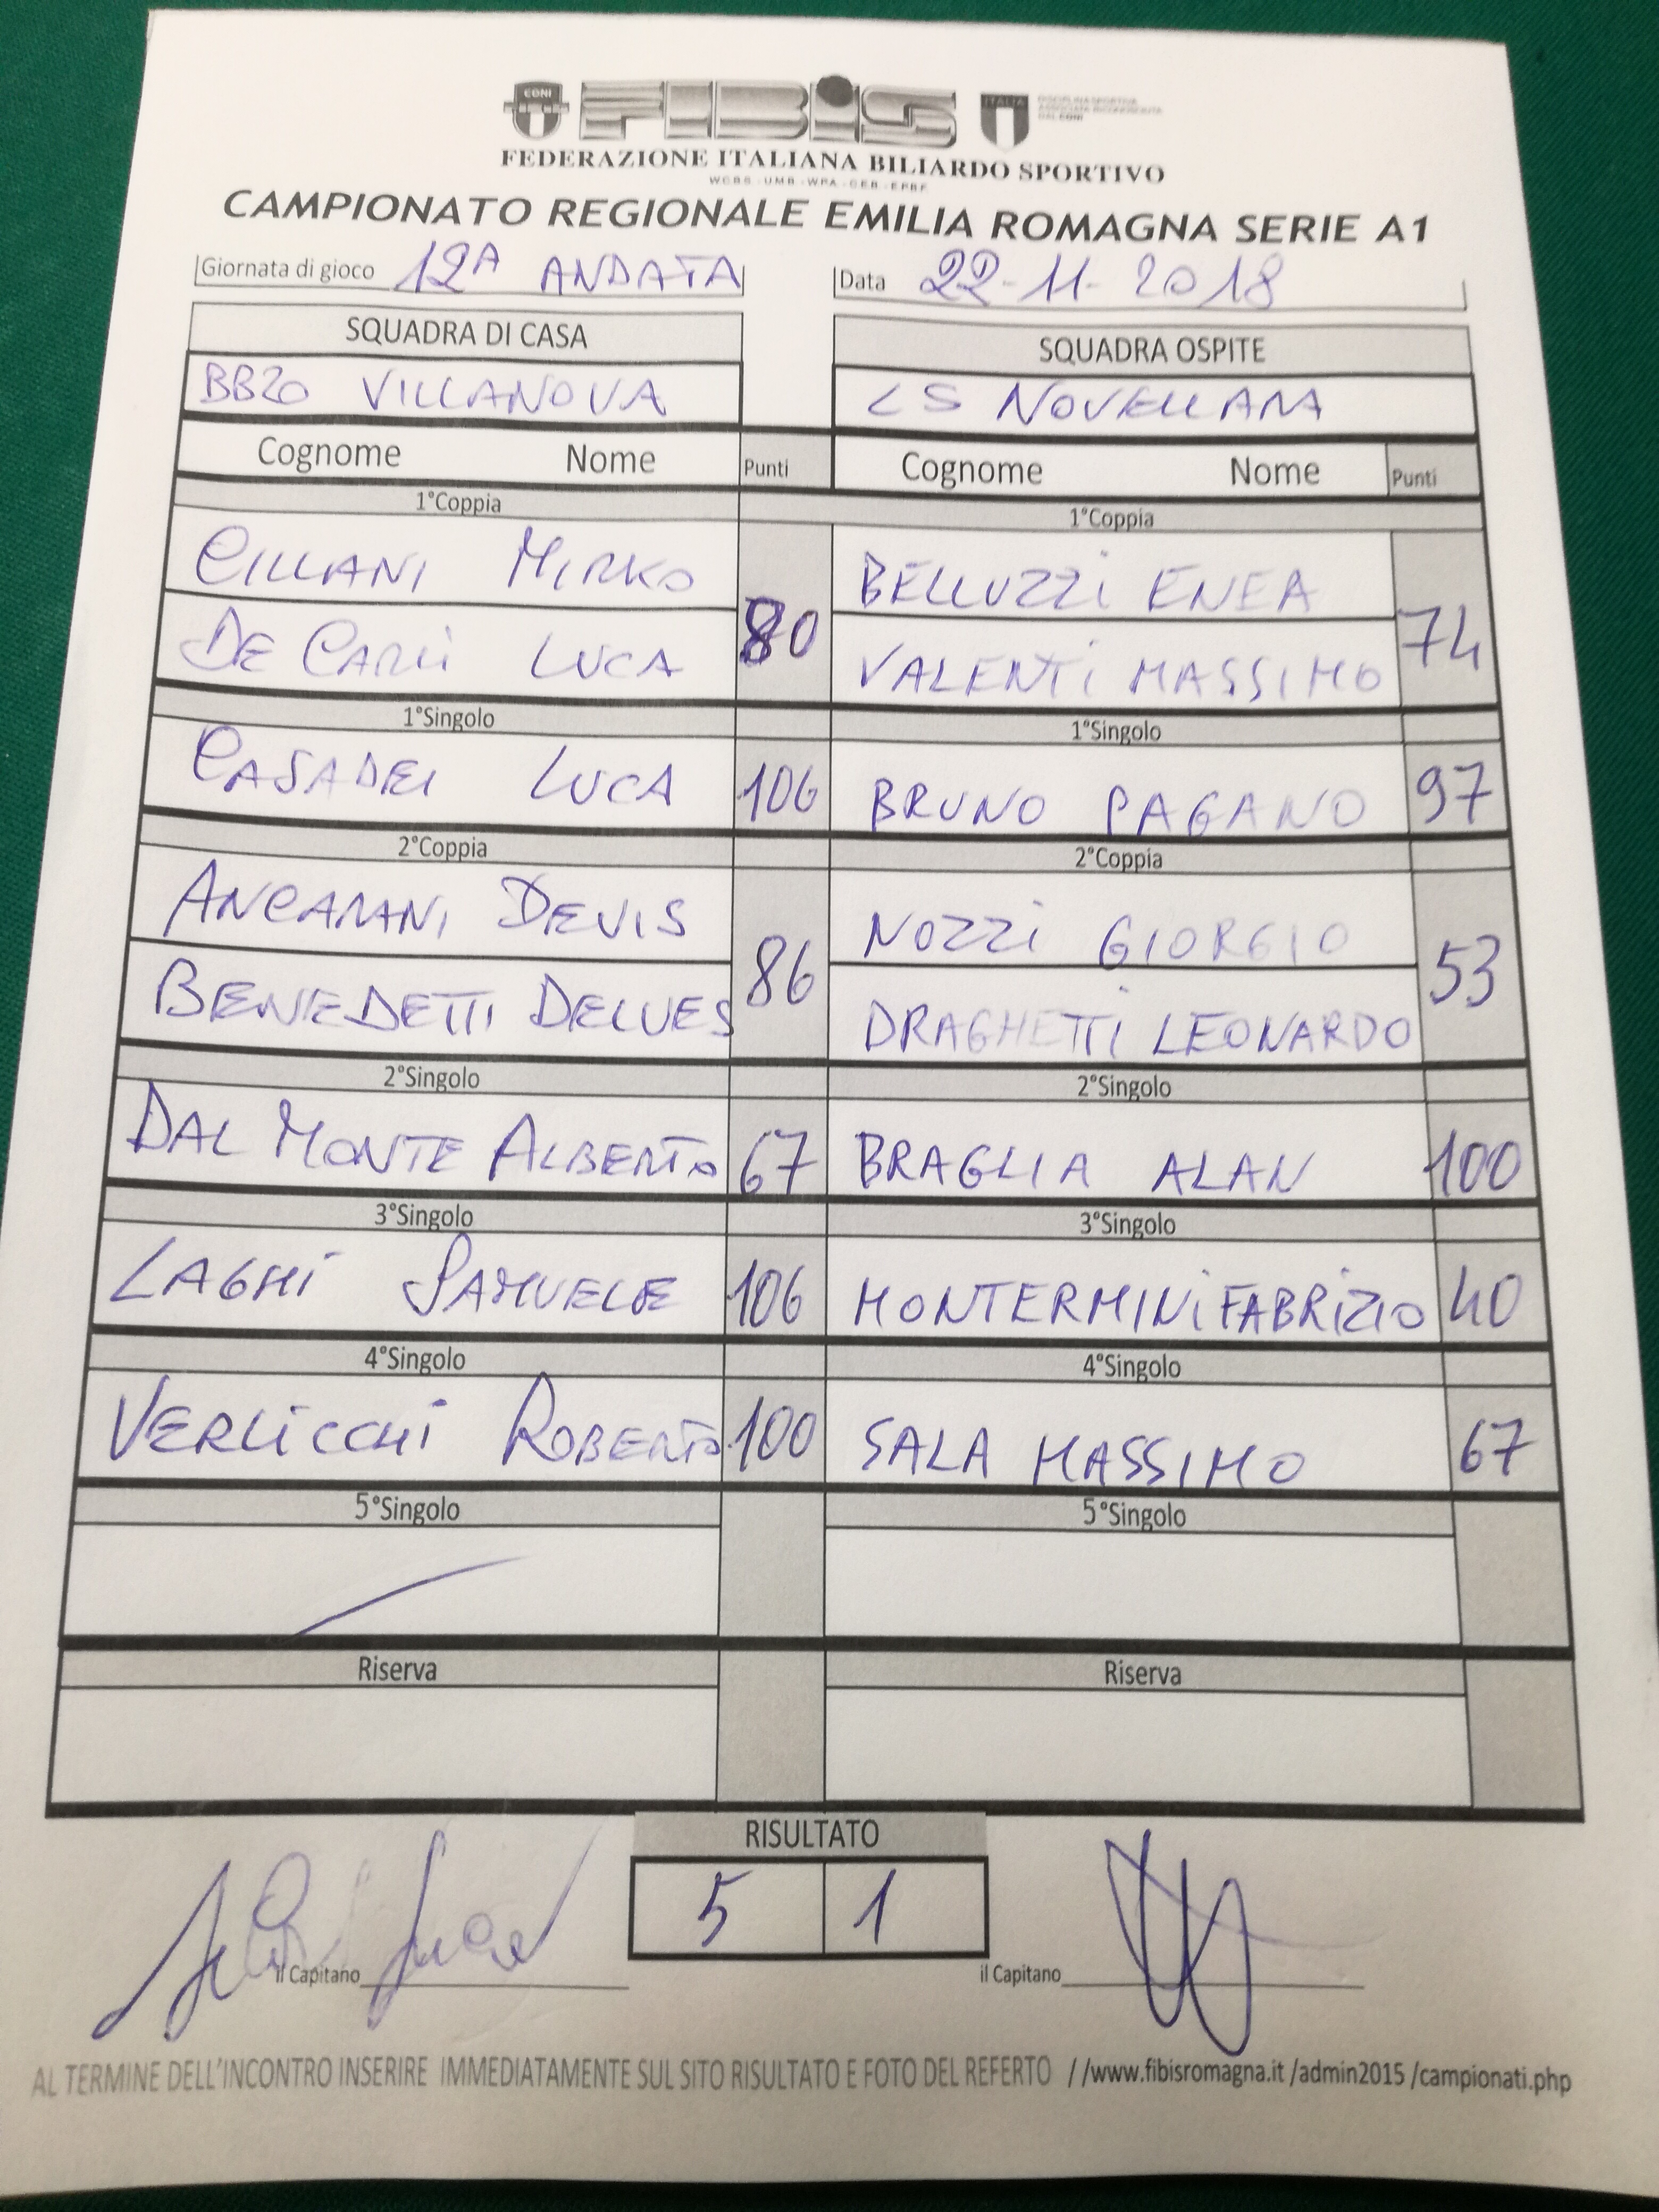 CONI FIBIS ITALIA DISCIPLINA SPORTIVA ASSOCIATA RICONOSCIUTA DAL CONI
FEDERAZIONE ITALIANA BILIARDO SPORTIVO
WCBS - UMB - WPA - CEB - EPBF
CAMPIONATO REGIONALE EMILIA ROMAGNA SERIE A1
Giornata di gioco 12A ANDATA Data 22-11-2018
SQUADRA DI CASA SQUADRA OSPITE
BB20 VILLANOVA CS NOVELLARA
Cognome Nome Punti Cognome Nome Punti
1°Coppia 1°Coppia
CILLANI MIRKO BELLUZZi ENEA
80 74
DE CARLi LUCA VALENTi MASSIMO
1°Singolo 1°Singolo
CASADEI LUCA 106 BRUNO PAGANO 97
2°Coppia 2°Coppia
ANCARANI DEVIS NOZZi GIORGIO
86 53
BENEDETTI DELVES DRAGHETTi LEONARDO
2°Singolo 2°Singolo
DAL MONTE ALBERTO 67 BRAGLIA ALAN 100
3°Singolo 3°Singolo
LAGHi SAMUELE 106 MONTERMINi FABRIZIO 40
4°Singolo 4°Singolo
VERLiCCHi ROBERTO 100 SALA MASSIMO 67
5°Singolo 5°Singolo
Riserva Riserva
RISULTATO
5 1
il Capitano il Capitano
AL TERMINE DELL'INCONTRO INSERIRE IMMEDIATAMENTE SUL SITO RISULTATO E FOTO DEL REFERTO //www.fibisromagna.it /admin2015 /campionati.php